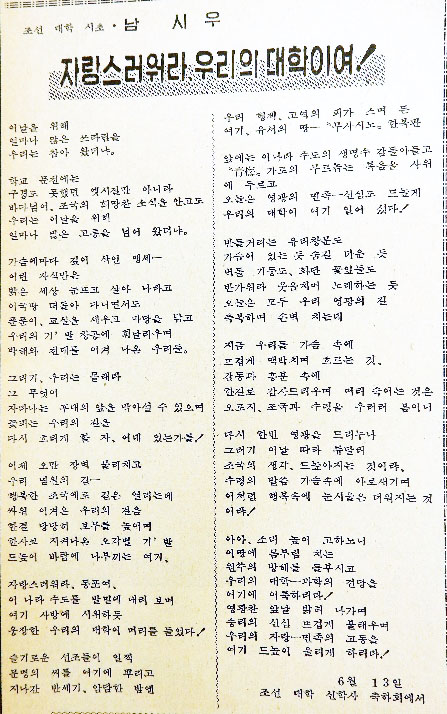 조선 대학 시초 · 남 시 우
자랑스러워라 우리의 대학이여!
이날을 위해
얼마나 많은 쓰라림을
우리는 참아 왔더냐.
학교 문전에는
구경도 못했던 옛시절만 아니라
바다넘어, 조국의 희망찬 소식을 안고도
우리는 이날을 위해
얼마나 많은 고통을 넘어 왔더냐.
가슴에마다 젖어 사연 맹세—
어린 자식만은
밝은 세상 눈뜨고 살아 나라고
이국땅 떠돌아 다니면서도
준준이, 교실을 세우고 마당을 닦고
우리의 기'발 창공에 휘날리우며
박해와 천대를 이겨 나온 우리들.
그러기, 우리는 몰래라
그 무엇이
우리의 앞을 막아설 수 있으며
우리의 길을
다시 흐리게 할 자, 어데 있는가를!
이제 오만 장벽 물리치고
우리 념원의 길—
행복한 조국에로 길은 열리는데
싸워 이겨온 우리의 전을
한결 당당히 보무를 높이며
한사코 지켜나온 오각별 기'발
드높이 바람에 나부끼는 여기,
자랑스러워라, 동포여,
이 나라 수도를 발밑에 내려 보며
여기 사방에 시위하듯
웅장한 우리의 대학이 머리를 들었다!
슬기로운 선조들이 일찍
문명의 씨를 여기에 뿌리고
지나간 반세기, 암담한 밤엔
우리 형제, 고역의 피가 스며 든
여기, 유서의 땅—“무사시노” 한복판
앞에는 이나라 수도의 생명수 감돌아들고
가로의 푸르른 록음을 사위
에 두르고
오늘은 영광의 민족—신심도 드높게
우리의 대학이 여기 일어 섰다!
반들거리는 유리창문도
가슴에 있는 듯 숨길 더운 듯
벽돌 기둥도, 화단 꽃잎들도
반가워라 웃음치며 노래하는 듯
오늘은 모두 우리 영광의 길
축복하며 손벽 치는데
지금 우리들 가슴 속에
뜨겁게 맥박치며 흐르는 것,
감동과 흥분 속에
한결로 감사드리우며 머리 숙이는 것은
오로지, 조국과 수령을 우러러 봄이니
다시 한번 영광을 드리누나
그러기 이날 따라 유달리
조국의 생각, 드높아지는 것이라,
수령의 말씀 가슴속에 아로새기며
이처럼 행복속에 눈시울은 더워지는 것
이라!
아아, 소리 높이 고하노니
이땅에 몸부림 치는
원쑤의 방해를 물리치고
우리의 대학—과학의 전당을
여기에 이룩하리라!
영광찬 앞날 밝혀 나가며
승리의 신심 뜨겁게 불태우며
우리의 자랑—민족의 고동을
여기 드높이 울리게 하리라!
6월 13일
조선 대학 신학사 축하회에서